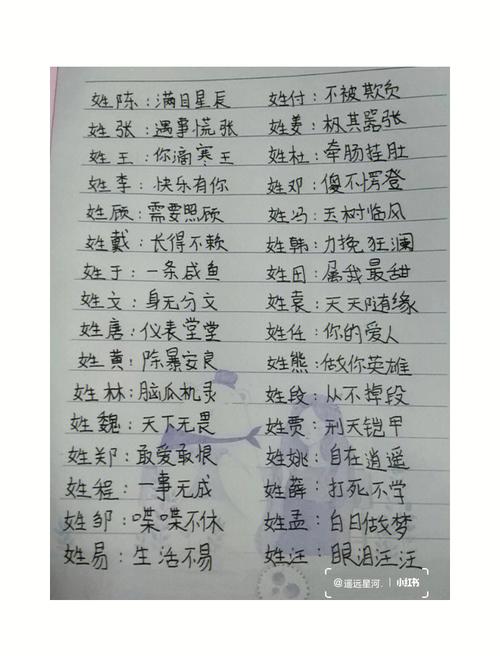 姓陈：满目星辰
姓张：遇事慌张
姓王：你滴寒王
姓李：快乐有你
姓顾：需要照顾
姓戴：长得不赖
姓于：一条咸鱼
姓文：身无分文
姓唐：仪表堂堂
姓黄：陈暴安良
姓林：脑瓜机灵
姓魏：天下无畏
姓郑：敢爱敢恨
姓程：一事无成
姓邹：喋喋不休
姓易：生活不易
姓付：不被欺负
姓姜：极其嚣张
姓杜：牵肠挂肚
姓邓：傻不愣登
姓冯：玉树临风
姓韩：力挽狂澜
姓田：属我最甜
姓袁：天天随缘
姓任：你的爱人
姓熊：做你英雄
姓段：从不掉段
姓贾：刑天铠甲
姓姚：自在逍遥
姓薛：打死不学
姓孟：白日做梦
姓汪：眼泪汪汪
@遥远星河.
小红书